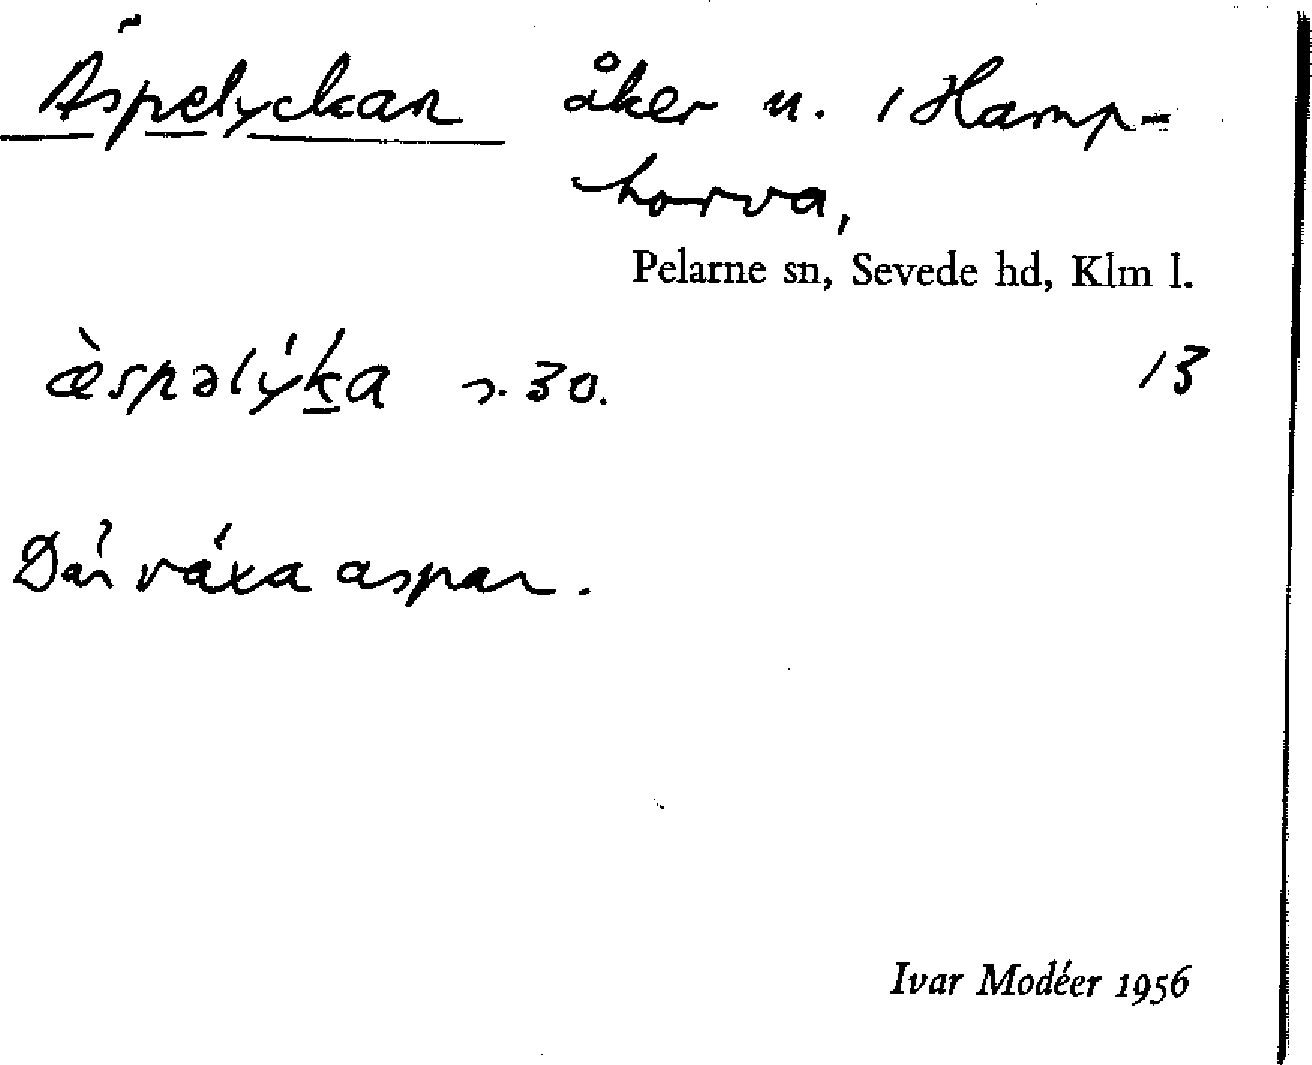 Äspelyckan åker u. 1 Hamp-
horva,
Pelarne sn, Sevede hd, Klm l.
æ̀spəlýka s. 30. 13
Där växa aspar.
Ivar Modéer 1956